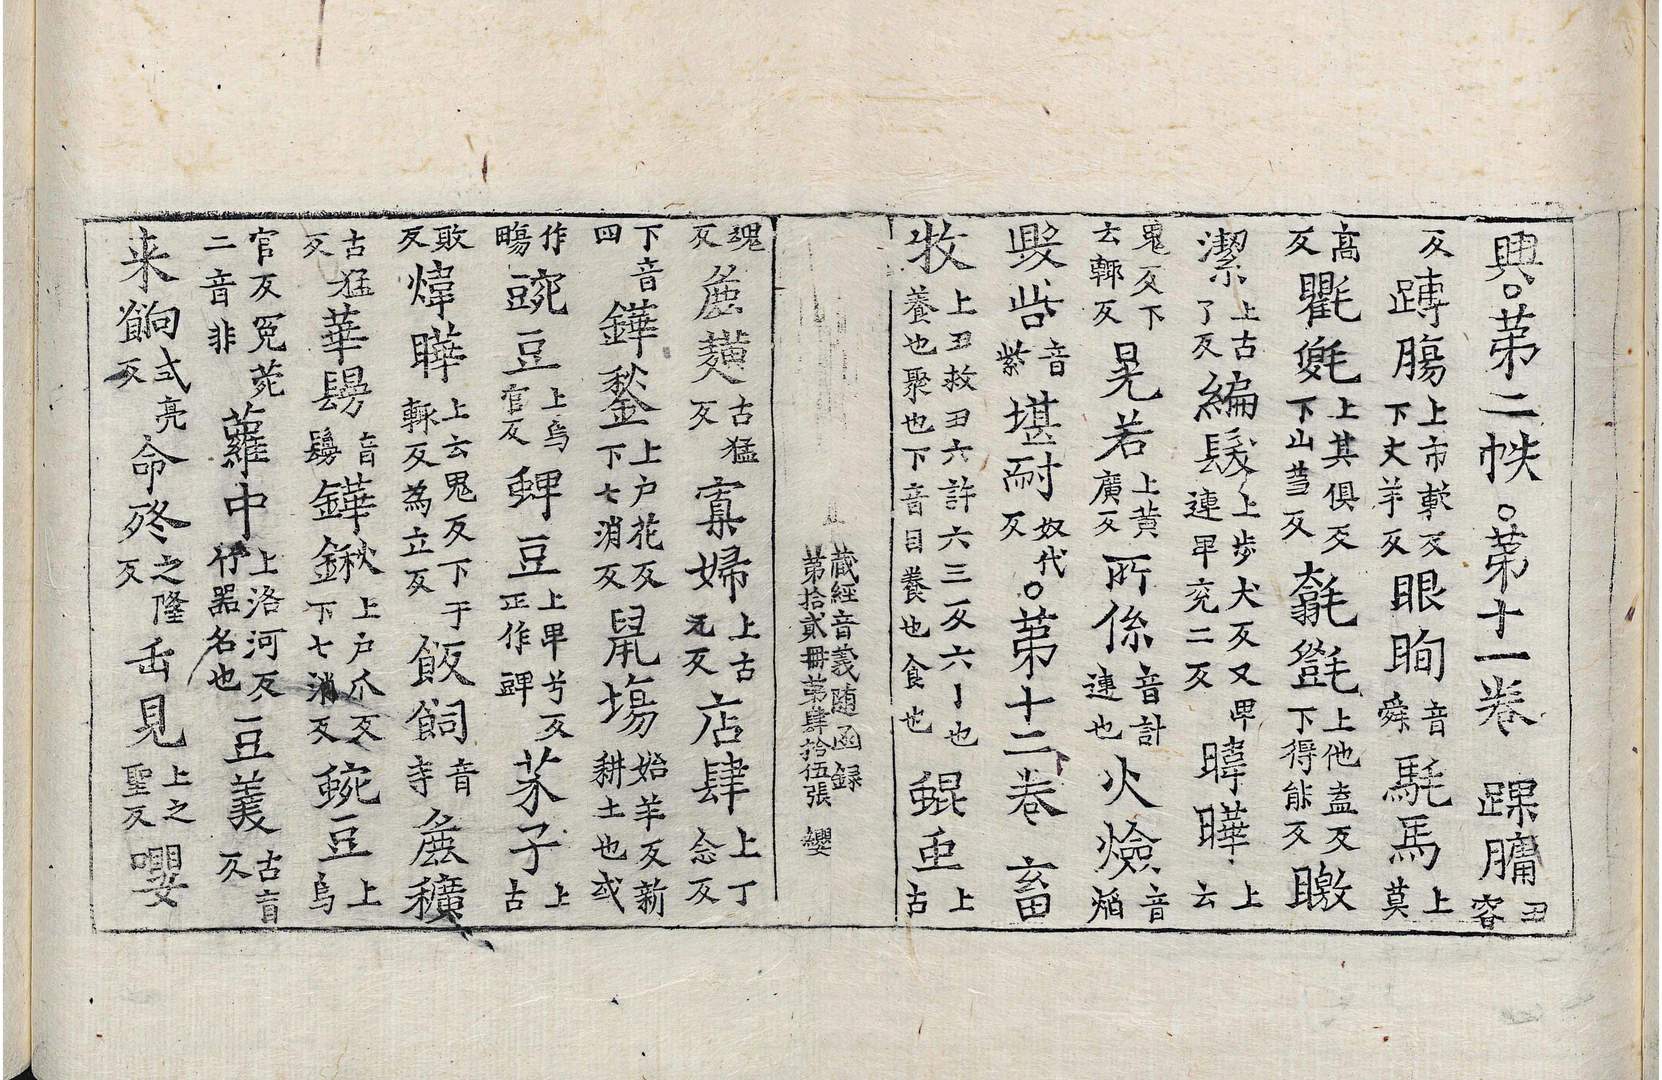 興。第二帙。第十一卷 踝𦟛丑容
反𨄔腸上市軟反下丈羊反眼眴音舜馲馬上莫
高反氍毹上其俱反下山蒭反㲪㲪上他盍反下得能反瞮
潔上古了反編髮上步犬反又畀連畀兖二反暐曄上云
鬼反下云輙反晃若上黃廣反所係音計連也火爓音焰
毀呰音紫堪耐奴代反。第十二卷 畜
牧上丑救丑六許六三反六丨也養也聚也下音目養也食也䖵䖝上古
藏經音義隨函録第拾貳冊第肆拾伍張 纓
魂反麁䵃古猛反寡婦上古元反店肆上丁念反
下音四鏵鍫上户花反下七消反鼠塲始羊反新耕土也或
作暘豌豆上烏官反䗚豆上畀兮反正作豍芥子上古
敗反煒曄上云鬼反下于輒反為立反飯飼音寺麁穬
古猛反華䯯音鬘鏵鍬上户爪反下七消反䝹豆上烏
官反冤菀二音非蘿中上洛河反竹器名也豆䕏古盲反
来餉式亮反命終之隆反缶見上之聖反嚶